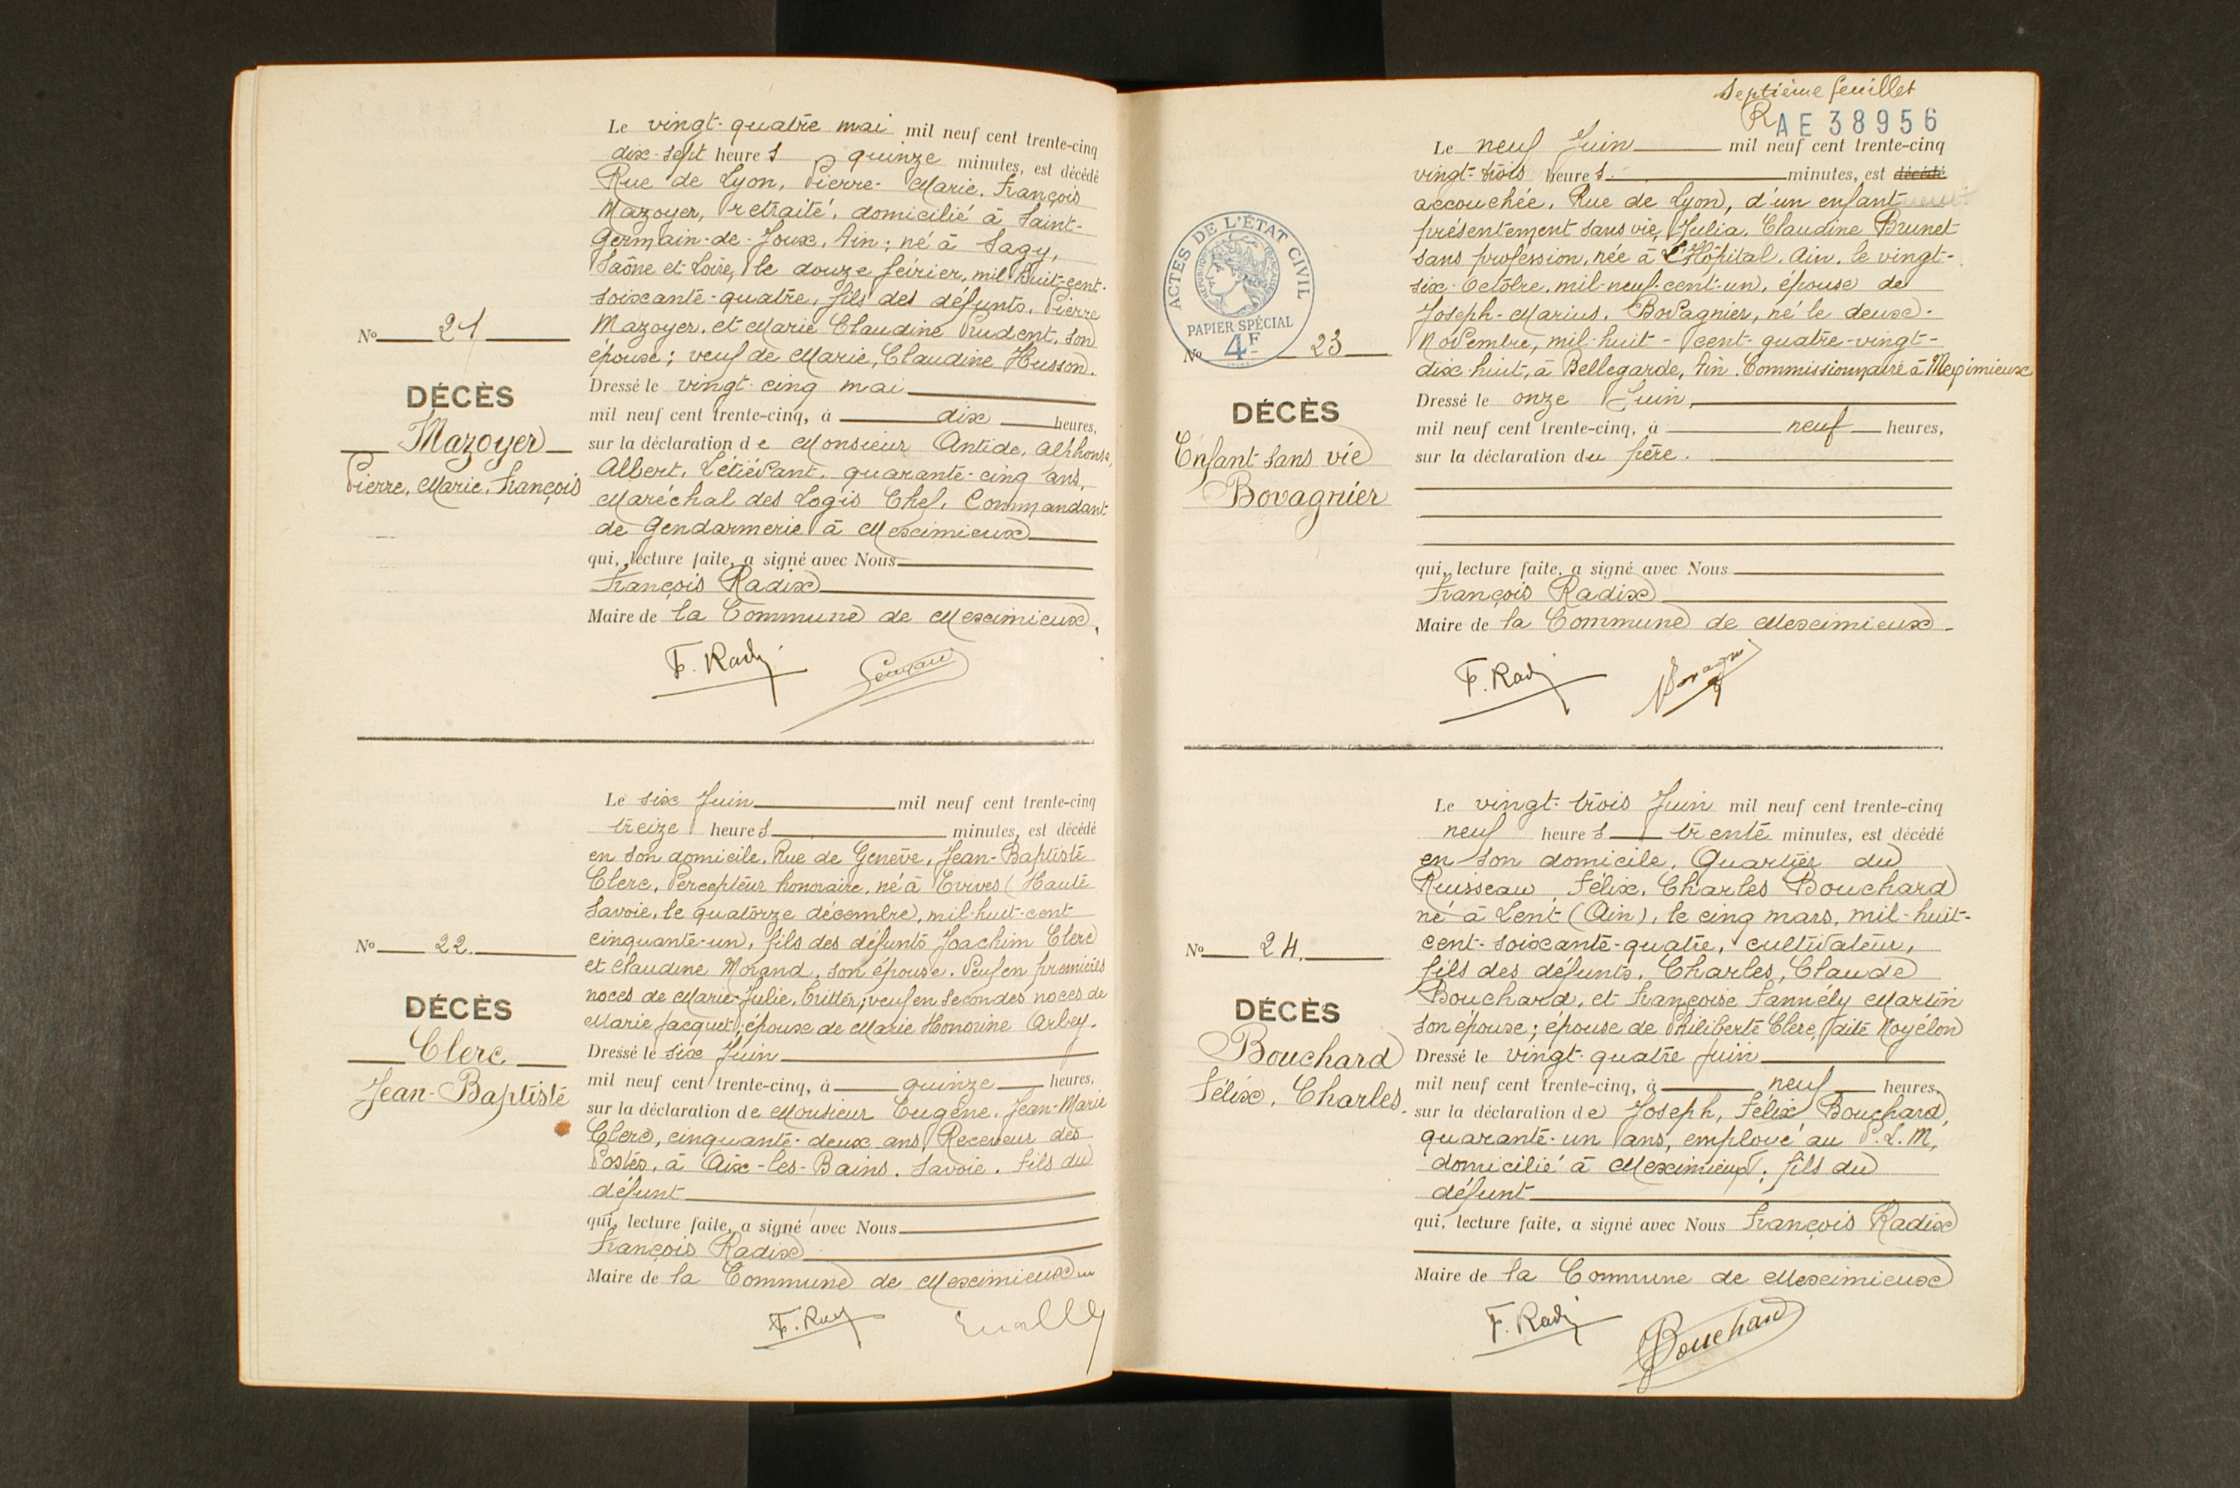 Le vingt-quatre mai mil neuf cent trente-cinq
dix-sept heures quinze minutes, est décédé
Rue de Lyon, Pierre-Marie, François
Mazoyer, retraité, domicilié à Saint-
Germain-de-Joux, Ain; né à Sagy,
Saône et Loire, le douze février, mil-huit-cent-
soixante-quatre, fils des défunts, Pierre
Mazoyer, et Marie Claudine Prudent, son
épouse; veuf de Marie, Claudine Husson.
Dressé le vingt-cinq mai
mil neuf cent trente-cinq, à dix heures,
sur la déclaration de Monsieur Antide, Alphonse,
Albert, Létiévant, quarante-cinq ans,
Maréchal des Logis Chef, Commandant
de Gendarmerie à Meximieux
qui, lecture faite, a signé avec Nous
François Radix
Maire de la Commune de Meximieux.
F. Radix
No 21
DÉCÈS
Mazoyer
Pierre, Marie, François
Le six Juin mil neuf cent trente-cinq
treize heures minutes, est décédé
en son domicile, Rue de Genève, Jean-Baptiste
Clerc, Percepteur honoraire, né à Evires (Haute
Savoie, le quatorze décembre, mil-huit-cent
cinquante-un, fils des défunts Joachim Clerc
et Claudine Morand, son épouse. Veuf en premières
noces de Marie-Julie, Trittér; veuf en secondes noces de
Marie Jacquet; époux de Marie Honorine Arbey.
Dressé le six Juin
mil neuf cent trente-cinq, à quinze heures,
sur la déclaration de Monsieur Eugène, Jean-Marie
Clerc, cinquante-deux ans, Receveur des
Postes, à Aix-les-Bains, Savoie, fils du
défunt
qui, lecture faite, a signé avec Nous
François Radix
Maire de la Commune de Meximieux
F. Radix
No 22.
DÉCÈS
Clerc
Jean-Baptiste
Septième feuillet
R AE 38956
Le neuf Juin mil neuf cent trente-cinq
vingt-trois heures minutes, est décédé
accouchée, Rue de Lyon, d'un enfant
présentement sans vie, Julia, Claudine Brunet
sans profession, née à L'Hôpital, Ain, le vingt-
six-Octobre, mil-neuf-cent-un, épouse de
Joseph-Marius, Bovagnier, né le deux-
Novembre, mil-huit-cent-quatre-vingt-
dix huit, à Bellegarde, Ain. Commissionnaire à Meximieux
Dressé le onze Juin
mil neuf cent trente-cinq, à neuf heures,
sur la déclaration du père.
qui, lecture faite, a signé avec Nous
François Radix
Maire de la Commune de Meximieux
F. Radix
ACTES DE L'ÉTAT CIVIL
PAPIER SPÉCIAL
4F
No 23
DÉCÈS
Enfant sans vie
Bovagnier
Le vingt-trois Juin mil neuf cent trente-cinq
neuf heures trente minutes, est décédé
en son domicile, Quartier du
Ruisseau, Félix, Charles Bouchard
né à Lent (Ain), le cinq mars, mil-huit-
cent-soixante-quatre, cultivateur,
fils des défunts, Charles, Claude
Bouchard, et Françoise Fannély Martin
son épouse; épouse de Philiberte Clerc, dite Noyélon
Dressé le vingt-quatre juin
mil neuf cent trente-cinq, à neuf heures,
sur la déclaration de Joseph, Félix Bouchard,
quarante-un ans, employé au P.L.M,
domicilié à Meximieux; fils du
défunt
qui, lecture faite, a signé avec Nous François Radix
Maire de la Commune de Meximieux
F. Radix Bouchard
No 24.
DÉCÈS
Bouchard
Félix, Charles.